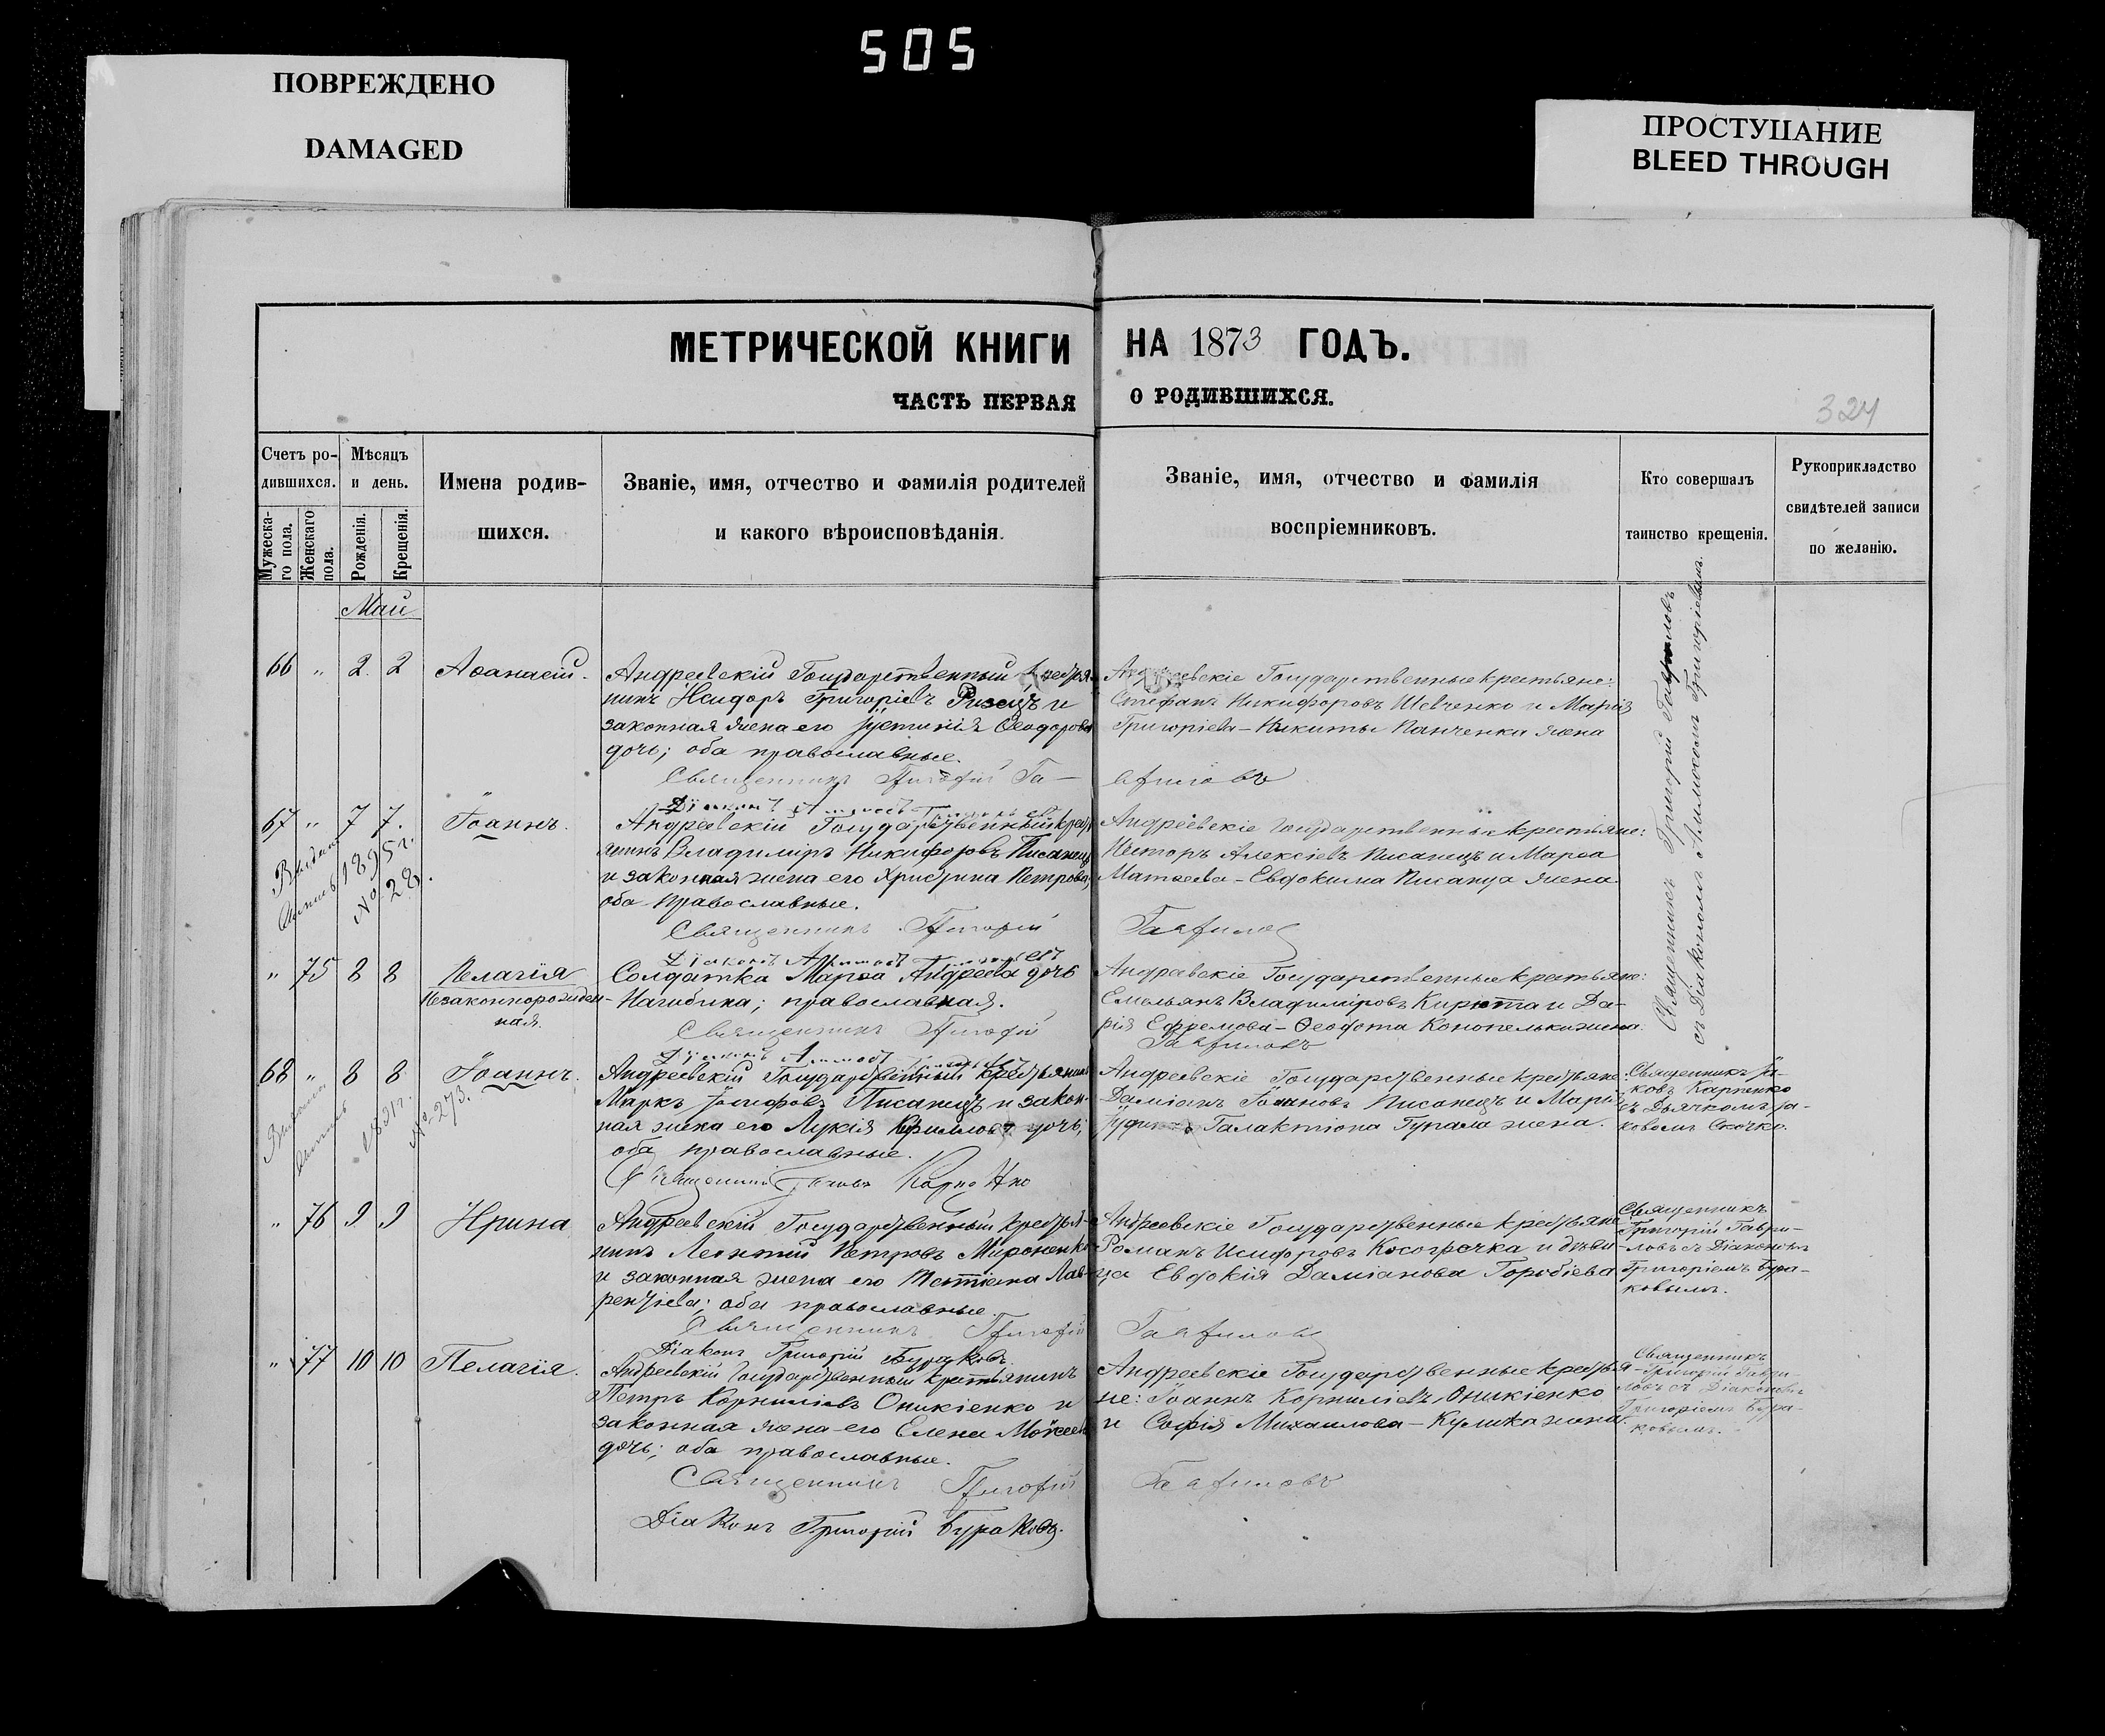 505
ПОВРЕЖДЕНО
DAMAGED
ПРОСТУПАНИЕ
BLEED THROUGH
МЕТРИЧЕСКОЙ КНИГИ НА 1873 ГОДЪ.
ЧАСТЬ ПЕРВАЯ О РОДИВШИХСЯ.
324
Счетъ ро-
дившихся.
Мужеска-
го пола.
Женскаго
пола.
Мѣсяцъ
и день.
Рожденія.
Крещенія.
Имена родив-
шихся.
Званіе, имя, отчество и фамилія родителей
и какого вѣроисповѣданія.
Званіе, имя, отчество и фамилія
воспріемниковъ.
Кто совершалъ
таинство крещенія.
Рукоприкладство
свидѣтелей записи
по желанію.
Май
66 " 2 2 Аѳанасій.
Андреевскій Государственный крестья
нинъ Исидоръ Григоріевъ и
законная жена его Ѳеодорова
дочь; оба православные.
Священникъ Григорій Га—
Андреевскіе Государственные крестьяне:
Стефанъ Никифоровъ Шевченко и Марія
Григоріева — Никиты Панченка жена
вриловъ
Священникъ Григорій Гавриловъ
съ Діакономъ Аммосомъ Григоріевымъ.
67 " 7 7. Іоаннъ.
1895 г.
№ 28.
Андреевскій Государственный крест
янинъ Владиміръ Никифоровъ Писанецъ
и законная жена его Христина Петрова;
оба православные.
Священникъ Григорій
Андреевскіе Государственные крестьяне:
Несторъ Алексіевъ Писанецъ и Марѳа
Матѳеева — Евдокима Писанца жена.
Гаврилов
" 75 8 8 Пелагія
Незаконнорожден-
ная.
Солдатка Марѳа Андреева дочь
Нагибина; православная.
Священникъ Григорій
Андреевскіе Государственные крестьяне:
Емельянъ Владиміровъ Кирюта и Да-
рія Ефремова — Ѳеодота Конопельки жена.
Гавриловъ
68 " 8 8 Іоаннъ.
№ 273.
Андреевскій Государственный крестьянинъ
Маркъ Іосифовъ Писанецъ и закон-
ная жена его Лукія дочь;
оба православные.
Андреевскіе Государственные крестьяне:
Даміанъ Іоанновъ Писанецъ и Марія
Галактіона Гупала жена.
Священникъ Іа-
ковъ Карпенко
съ Дьячкомъ Іа-
ковомъ Скочко.
" 76 9 9 Ирина
Андреевскій Государственный крестья-
нинъ Леонтій Петровъ Мироненко
и законная жена его Татіана Лав-
рентіева; оба православные.
Священникъ Григорій
Діаконъ Григорій Бураковъ.
Андреевскіе Государственные крестьяне
Романъ Исидоровъ Косогрочка и дѣви-
ца Евдокія Даміанова Горобіева
Гаврилов
Священникъ
Григорій Гаври-
ловъ съ Діакономъ
Григоріемъ Бура-
ковымъ.
" 77 10 10 Пелагія.
Андреевскій Государственный крестьянинъ
Петръ Корниліевъ Оникіенко и
законная жена его Елена Моѵсеев
дочь; оба православные.
Священникъ Григорій
Діаконъ Григорій Бураковъ.
Андреевскіе Государственные крестья-
не: Іоаннъ Корниліевъ Оникіенко
и Софія Михаилова — Кулика жена.
Гавриловъ
Священникъ
Григорій Гаври-
ловъ съ Діакономъ
Григоріемъ Бура-
ковымъ.